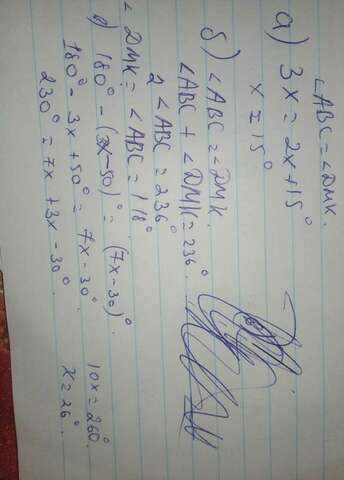 ∠ABC = ∠DMK.
а) 3x = 2x + 15°
x = 15°
б) ∠ABC = ∠DMK
∠ABC + ∠DMK = 236°.
2 ∠ABC = 236°
∠DMK = ∠ABC = 118°
180° - (3x-50)° = (7x-30)°.
180° - 3x + 50° = 7x - 30°
230° = 7x + 3x - 30°.
10x = 260°.
x = 26°.